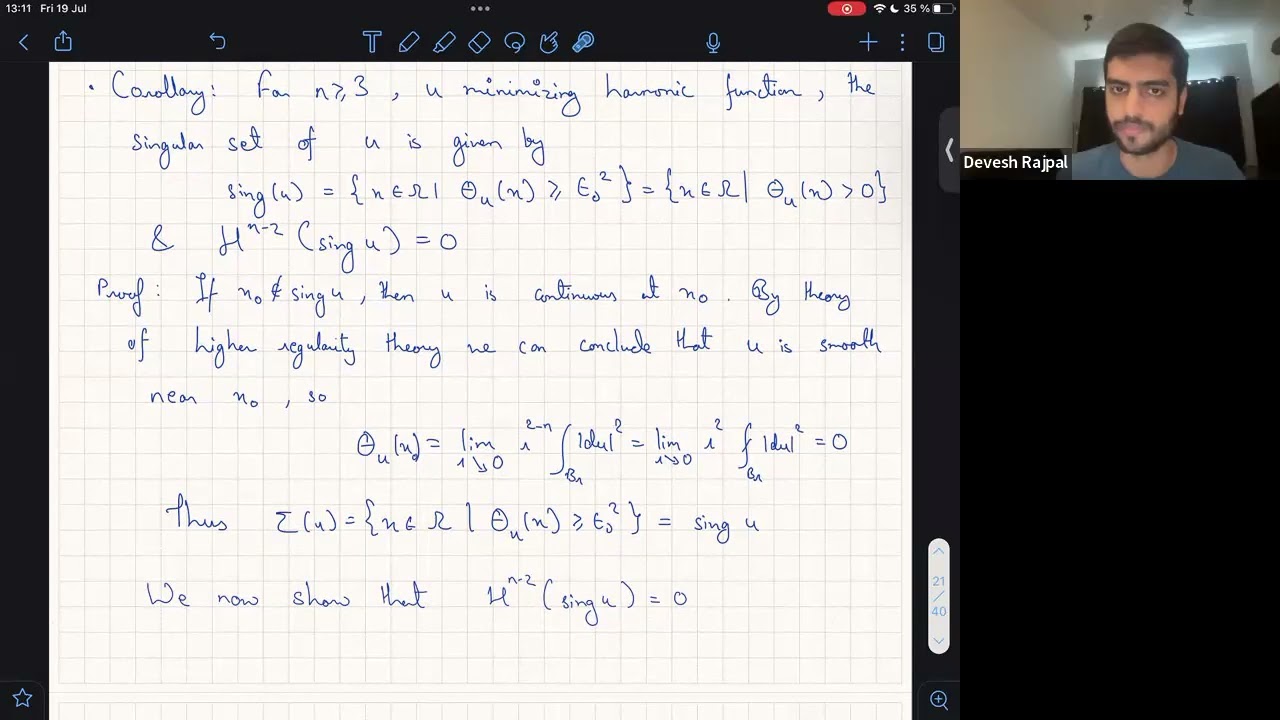 13:11 Fri 19 Jul
35 %
Devesh Rajpal
• Corollary: For n ≥ 3, u minimizing harmonic function, the
singular set of u is given by
sing(u) = {x ∈ Ω | Θ_u(x) ≥ ε_0^2} = {x ∈ Ω | Θ_u(x) > 0}
& H^{n-2}(sing u) = 0
Proof: If x_0 ∉ sing u, then u is continuous at x_0. By theory
of higher regularity theory we can conclude that u is smooth
near x_0, so
Θ_u(x_0) = lim_{r↘0} r^{2-n} ∫_{B_r} |du|^2 = lim_{r↘0} r^2 ⨍_{B_r} |du|^2 = 0
Thus Σ(u) = {x ∈ Ω | Θ_u(x) ≥ ε_0^2} = sing u
We now show that H^{n-2}(sing u) = 0
21
/
40